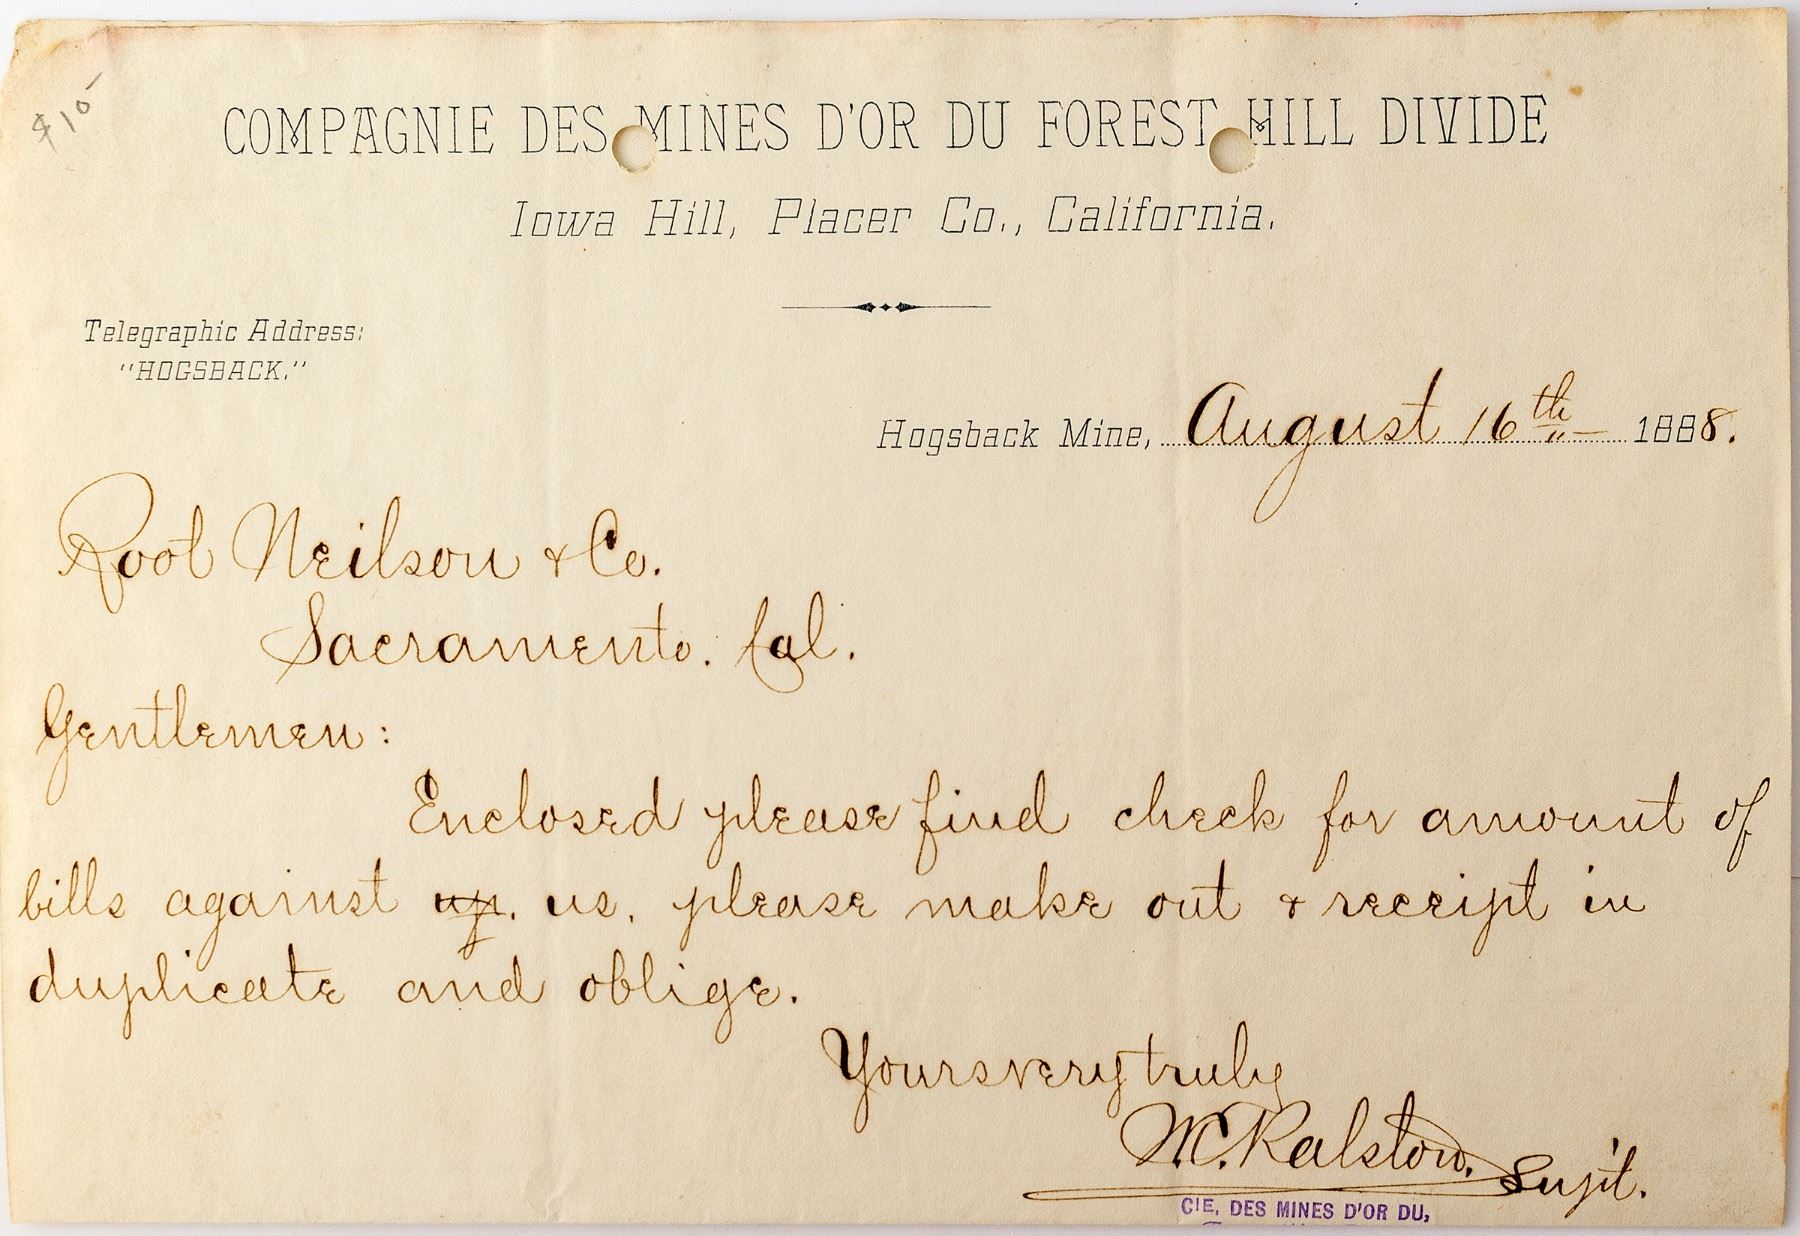 $10-
COMPAGNIE DES MINES D'OR DU FOREST HILL DIVIDE
Iowa Hill, Placer Co., California.
Telegraphic Address:
"HOGSBACK."
Hogsback Mine, August 16th 1888.
Root Neilson & Co.
Sacramento. Cal.
Gentlemen:
Enclosed please find check for amount of
bills against up. us. please make out & receipt in
duplicate and oblige.
Yours very truly
W.C. Ralston. Sup't.
CIE, DES MINES D'OR DU,